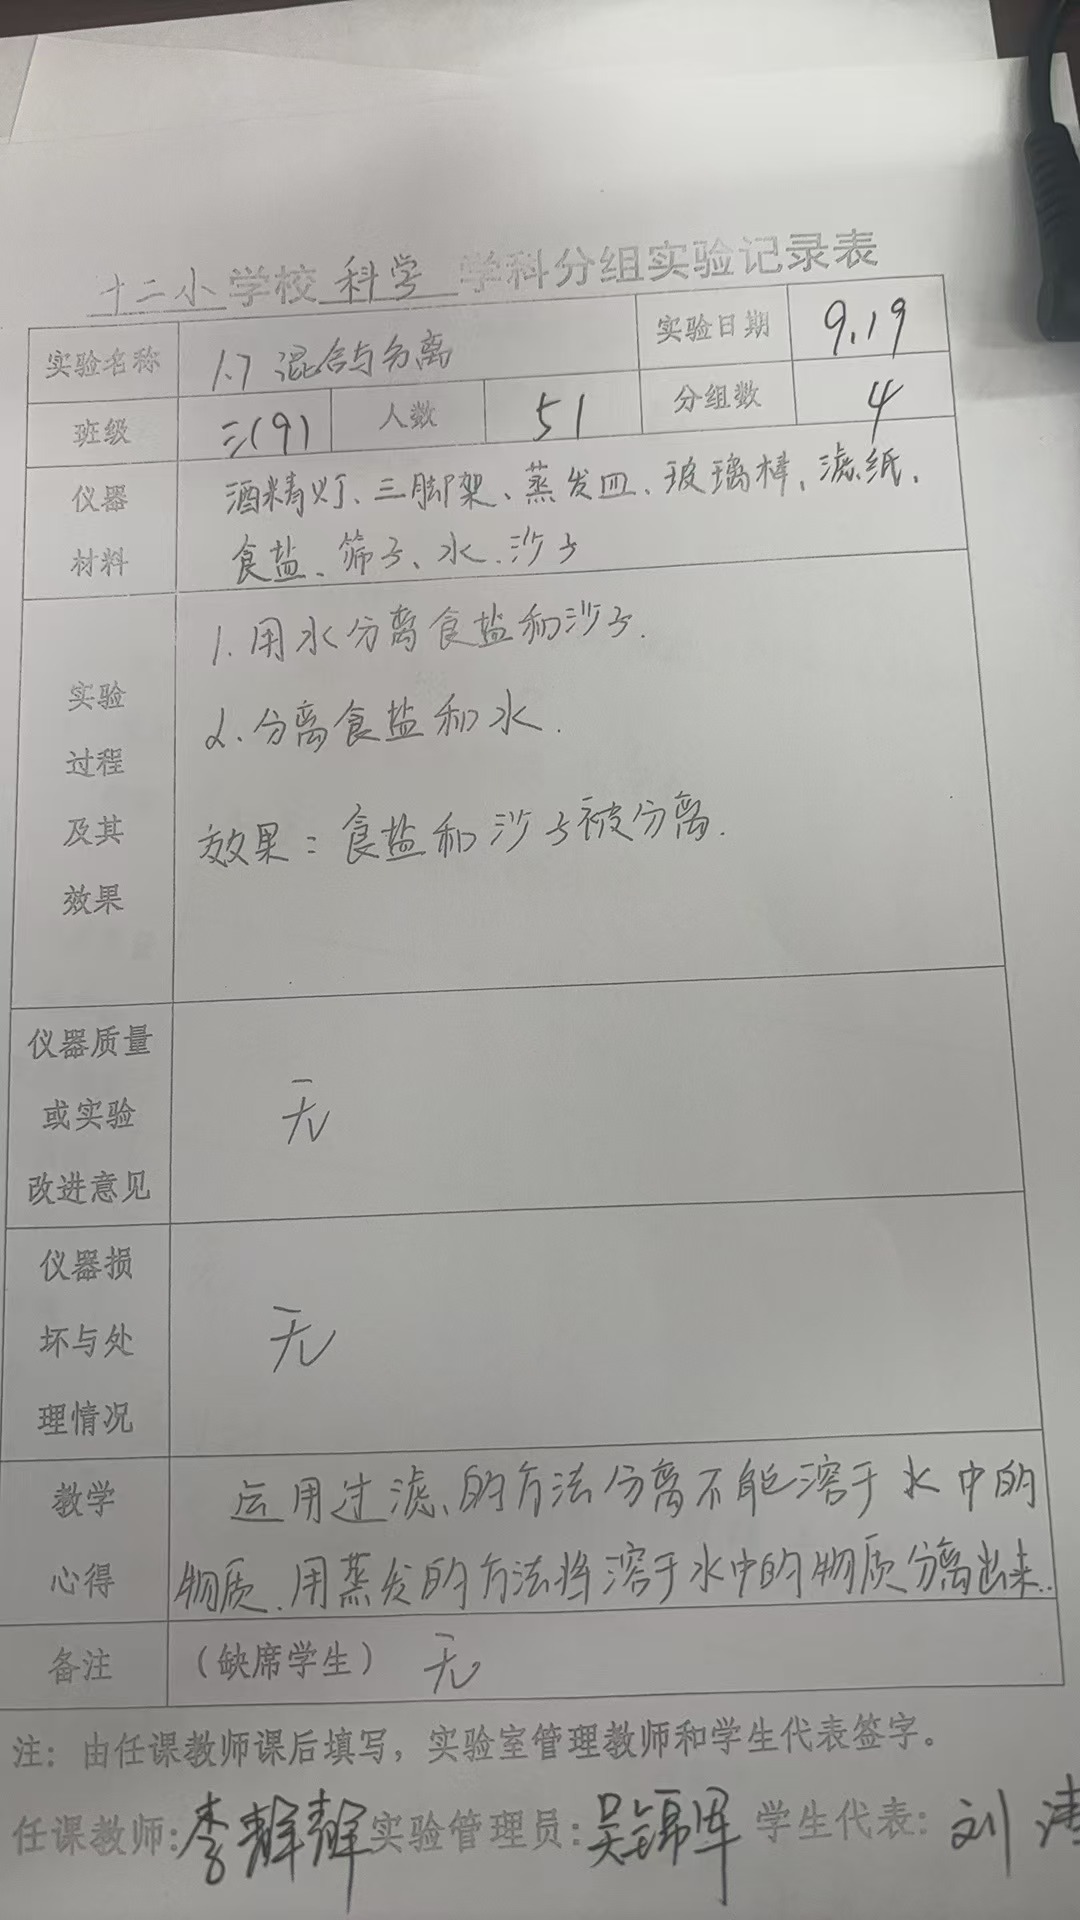 十二小学校科学学科分组实验记录表
实验名称 1.7 混合与分离 实验日期 9.19
班级 三(9) 人数 51 分组数 4
仪器材料
酒精灯、三脚架、蒸发皿、玻璃棒、滤纸、
食盐、筛子、水、沙子
实验过程及其效果
1.用水分离食盐和沙子.
2.分离食盐和水.
效果：食盐和沙子被分离.
仪器质量或实验改进意见
无
仪器损坏与处理情况
无
教学心得
运用过滤的方法分离不能溶于水中的
物质.用蒸发的方法将溶于水中的物质分离出来.
备注 （缺席学生） 无
注：由任课教师课后填写，实验室管理教师和学生代表签字。
任课教师:李群群 实验管理员:吴锦军 学生代表:刘